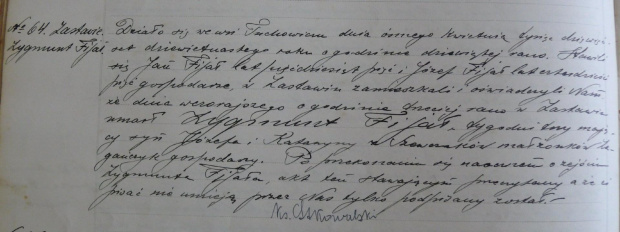 № 64. Zastawie. Działo się we wsi Tuchowicz dnia ósmego Kwietnia tysiąc dziewięć-
Zygmunt Fijał set dziewiętnastego roku o godzinie dziewiątej rano. Stawili
się Jan Fijał lat pięćdziesiąt pięć i Józef Fijał lat czterdzieści
pięć gospodarze, w Zastawiu zamieszkali i oświadczyli Nam,
że dnia wczorajszego o godzinie rano w Zastawiu
umarł Zygmunt Fijał, tygodni trzy mają-
cy syn Józefa i Katarzyny z małżonków
gospodarzy. Po przekonaniu się naocznem o zejściu
Zygmunta Fijała, akt ten stawającym przeczytany a że ci
pisać nie umieją przez Nas tylko podpisany został.
Ks.